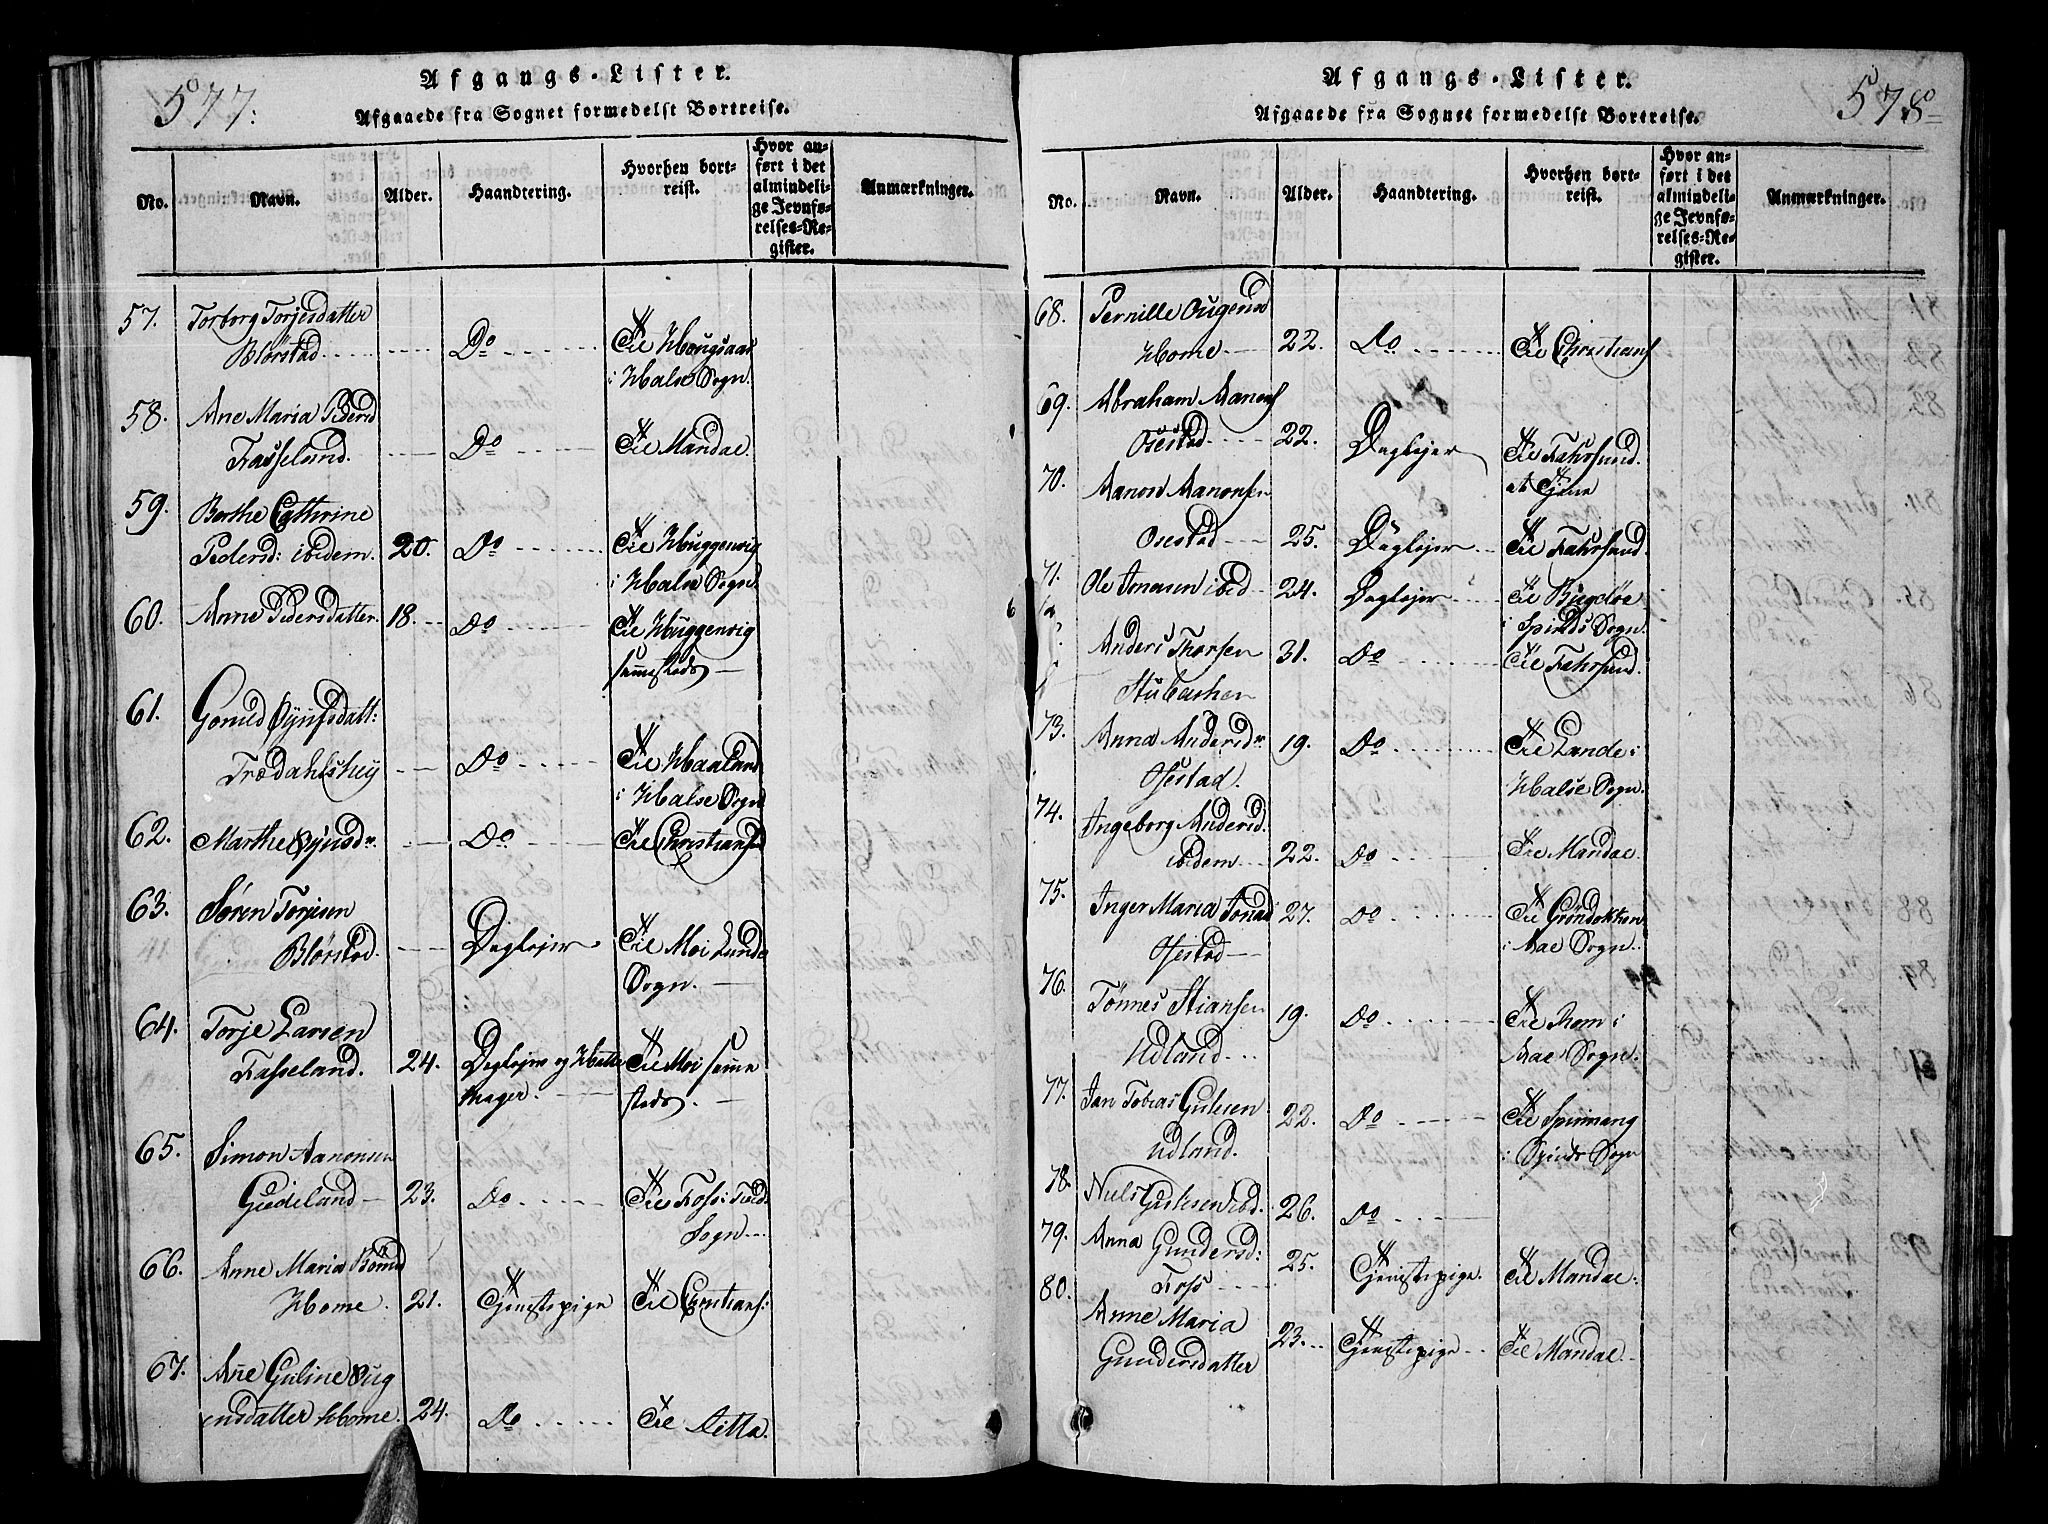 577.
Afgangs-Lister.
Afgaaede fra Sognet formedelst Bortreise.
No.
Navn.
Alder.
Haandtering.
Hvorhen bort-
reist.
Hvor an-
ført i det
almindeli-
ge Jevnfø-
relses-Re-
gister.
Anmærkninger.
57. Torborg Torjesdatter
Blørstad Do Til Hougsaas
i Halse Sogn.
58. Ane Maria Pedersd
Fasseland. Do Til Mandal.
59. Berthe Cathrine
Pedersd: ibidem. 20. Do Til Huggenvig
i Halse Sogn.
60. Anne Pedersdatter 18. Do Til Huggenvig
sammesteds
61. Gonild
Trædahlshey Do Til Haaland
i Halse Sogn
62. Marthe Do Til Christians
63. Søren Torjesen
Blørstad. Daglejer Til Moi Lunde
Sogn.
64. Torje Larsen
Fasseland. 24. Daglejer og Hatte Til Moi samme
mager. steds.
65. Simon Aanonsen
Gudeland 23. Do Til Foss i
Sogn
66. Anne Maria
Home. 21. Tjenistepige Til Christians:
67. Ane Guline Oug
ensdatter Home. 24. Do Til Ditto.
578
Afgangs-Lister.
Afgaaede fra Sognet formedelst Bortreise.
No.
Navn.
Alder.
Haandtering.
Hvorhen bort-
reist.
Hvor an-
ført i det
almindeli-
ge Jevnfø-
relses-Re-
gister.
Anmærkninger.
68. Pernille Ougensd
Home 22. Do Til Christians
69. Abraham Aanons
Osestad 22. Daglejer Til Fahrsund.
at tjene
70. Aanon Aanonsen
Osestad 25. Daglejer Til Fahrsund.
71. Ole ibid 24. Daglejer Til
i Spinds Sogn.
Anders Thorsen 31. Do Til Fahrsund.
Stubackken
73. Anna Andersdr 19. Do Til Lande i
Osestad. Halse Sogn.
74. Ingeborg Andersd.
ibidem 22. Do Til Mandal.
75. Inger Maria 27. Do Til
Osestad i Aae Sogn.
76. Tønnes Stiansen 19. Do Til Rom i
Udland Aae Sogn.
77. Jan Tobias Gulesen 22. Do Til
Udland. i Spinds Sogn
78. Niels Gulesen ibd. 26. Do
79. Anna Gundersd: 25. Tjenistepige. Til Mandal.
Foss
80. Anne Maria 23. Tjenistepige Til Mandal.
Gundersdatter